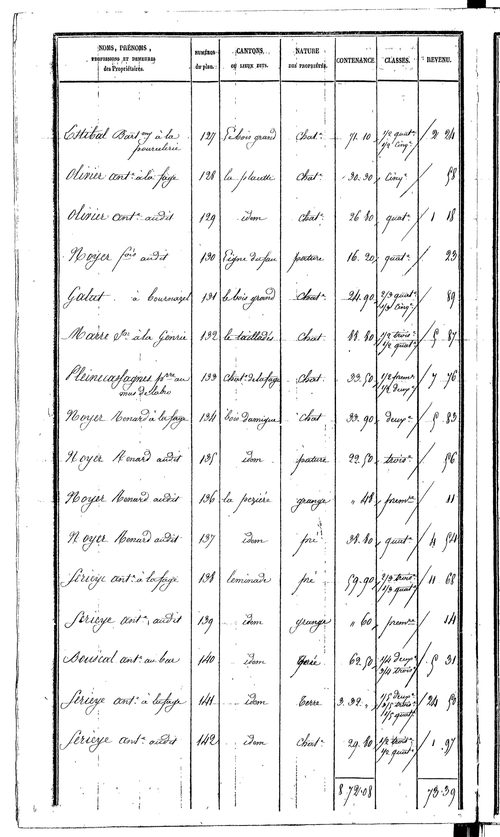 NOMS, PRÉNOMS, PROFESSIONS ET DEMEURES des Propriétaires. NUMÉROS du plan. CANTONS OU LIEUX DITS. NATURE DES PROPRIÉTÉS. CONTENANCE. CLASSES. REVENU.
Estibal Bart.my à la pourcelerie 127 Le bois grand Chat.n 71.10 1/2 quat.e 1/2 Cinq.e 2 24
Olivier ant.e à la faje 128 la planette Chat.n 30.30 Cinq.e 58
Olivier ant.e audit 129 idem Chat.n 26 80 quat.e 1 18
Noyer f.ois audit 130 pature 16.20 quat.e 23
Galat à bournazel 131 le bois grand Chat.n 24.90 2/3 quat.e 1/3 Cinq.e 89
Marre à la 132 le taillades Chat 88.80 1/2 trois.e 1/2 quat.e 5 87
Pleinecassagnes p.rre au mas de 133 Chat.n de la faje Chat 33.50 1/2 prem.r 1/2 deux.e 7 76
Noyer Menard à la faje 134 Chat 33.90 deux.e 5 83
Noyer Menard audit 135 idem pature 22.50 trois.e 56
Noyer Menard audit 136 la grange " 48 prem.re 11
Noyer Menard audit 137 idem pré 38.80 quat.e 4 54
Serieye ant.e à la faje 138 leminade pré 59.90 2/3 trois.e 1/3 quat.e 11 68
Serieye ant.e audit 139 idem grange " 60 prem.re 14
Bouscal ant.e au 140 idem 62.50 1/4 deux.e 3/4 trois.e 5 31
Serieye ant.e à la faje 141 idem Terre 3.32 " 1/5 deux.e 3/5 trois.e 1/5 quat.e 24 50
Serieye ant.e audit 142 idem Chat.n 29.80 1/2 trois.e 1/2 quat.e 1 97
8 72.08 73.39